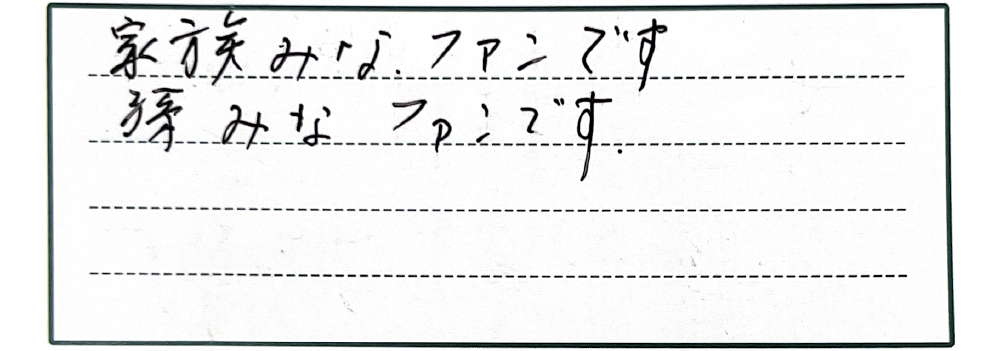 家族みな.ファンです
みな ファンです.